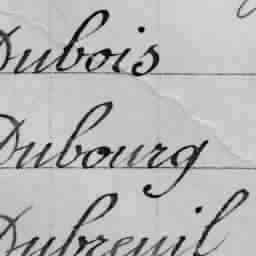 Dubois
Dubourg
Dubreuil